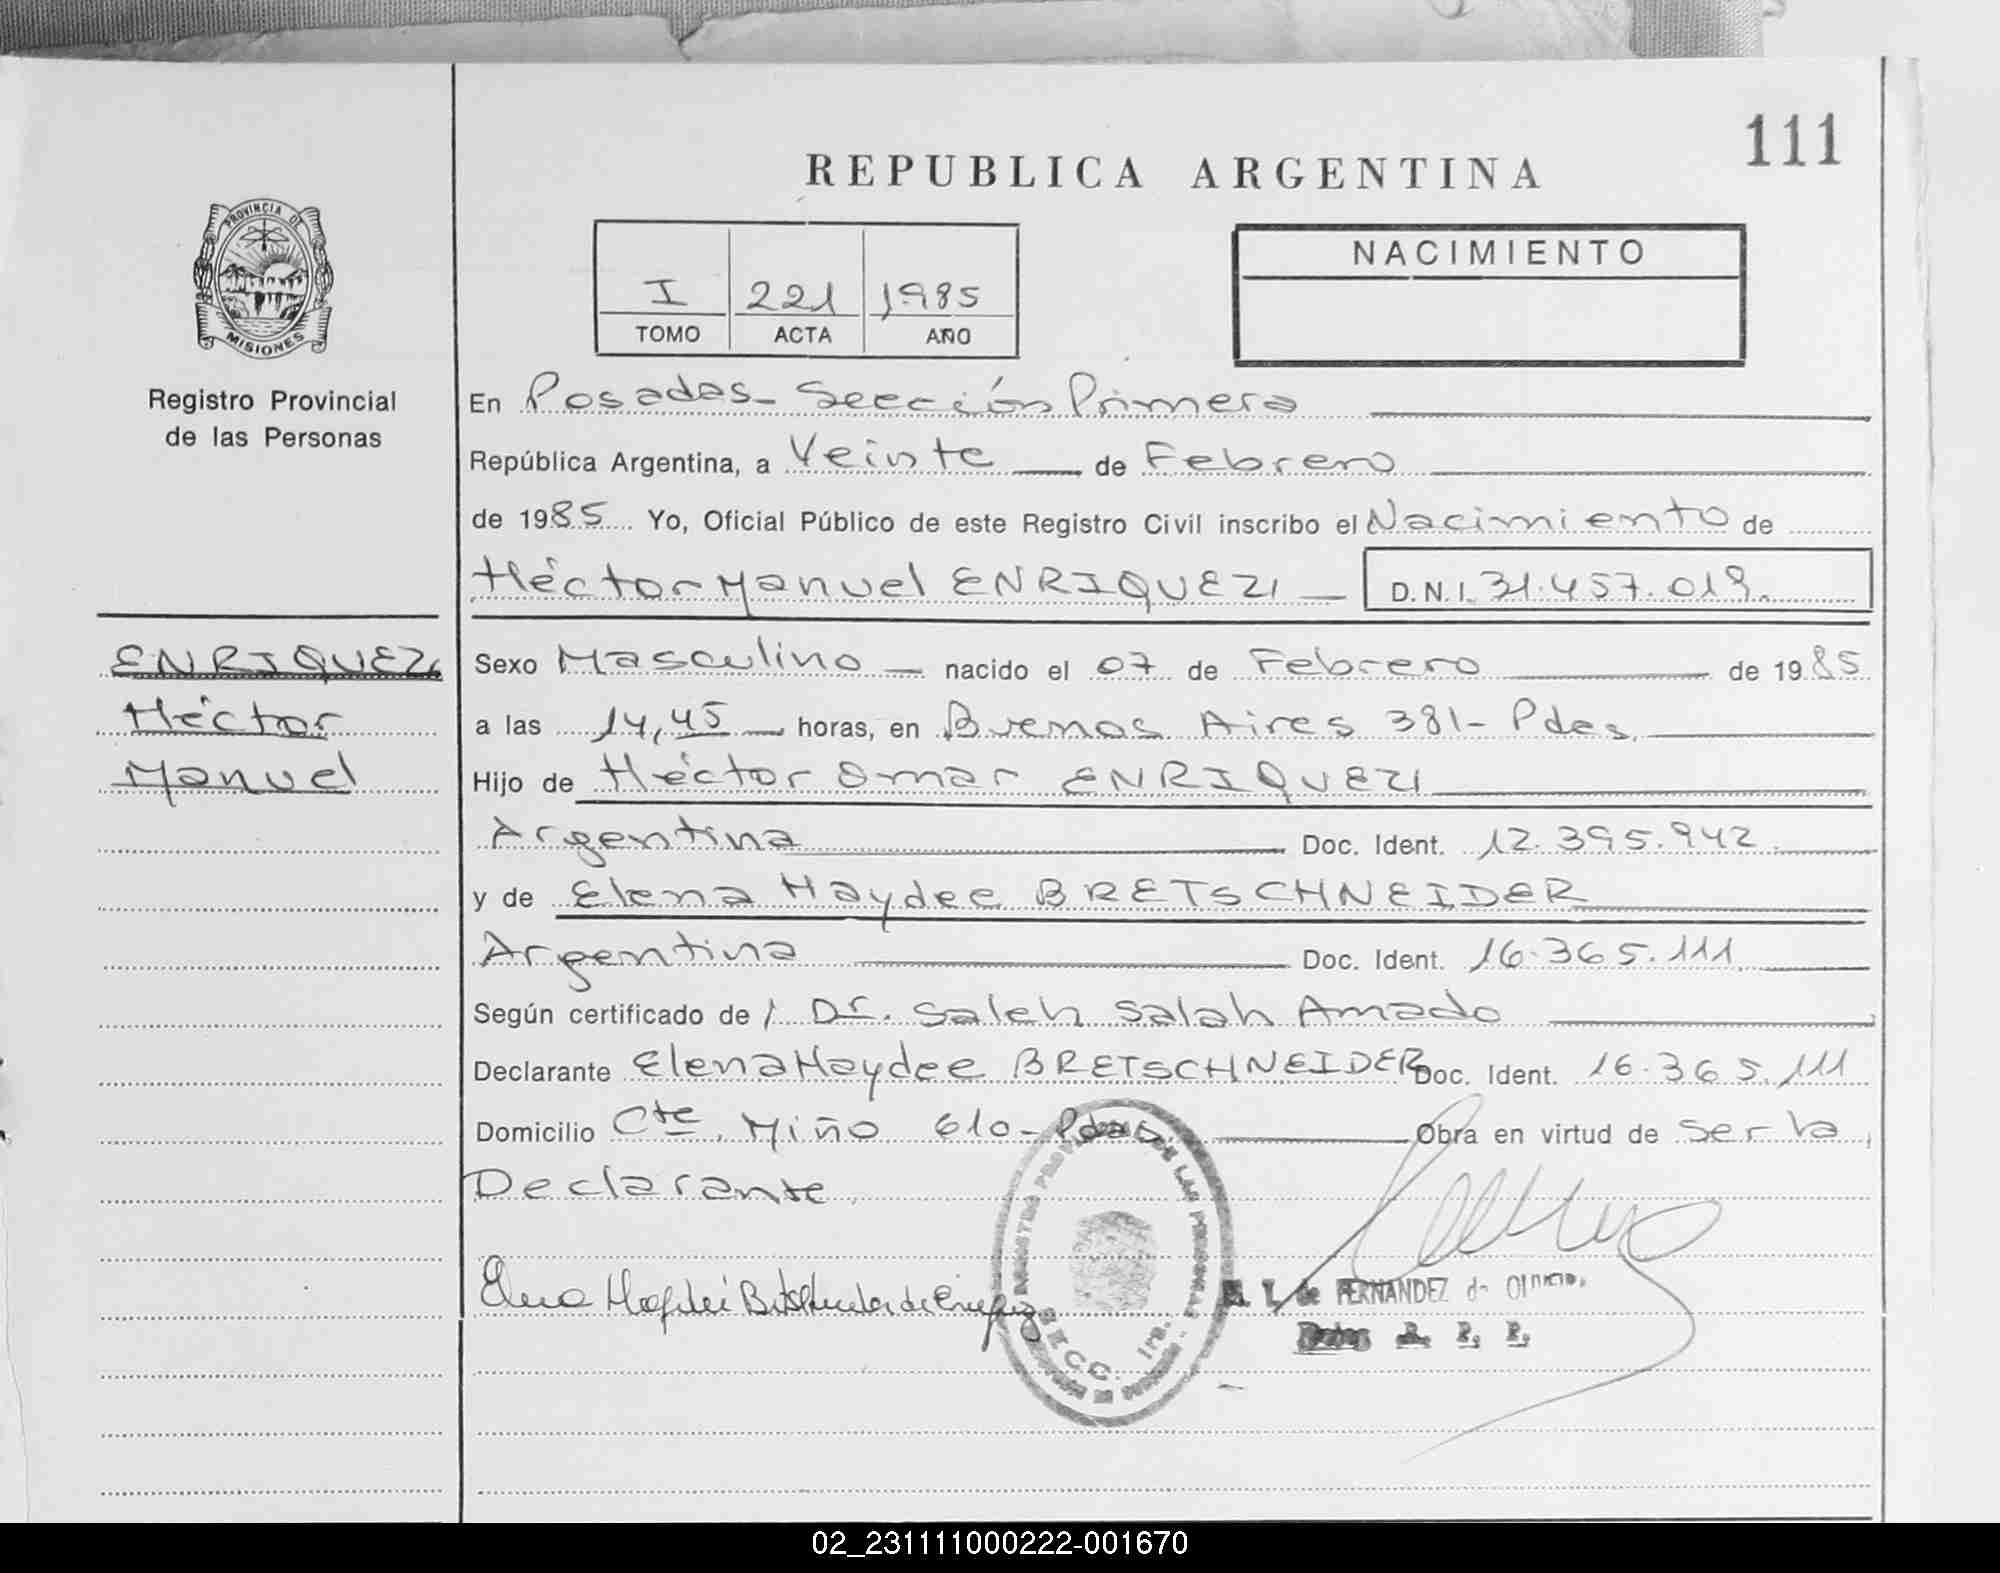 111
REPUBLICA ARGENTINA
PROVINCIA DE
MISIONES
Registro Provincial
de las Personas
I 221 1985
TOMO ACTA AÑO
NACIMIENTO
En Posadas - Sección Primera
República Argentina, a Veinte de Febrero
de 1985 Yo, Oficial Público de este Registro Civil inscribo el Nacimiento de
Héctor Manuel ENRIQUEZ D.N.I. 31.457.019.
ENRIQUEZ
Héctor
Manuel
Sexo Masculino nacido el 07 de Febrero de 1985
a las 14,45 horas, en Buenos Aires 381 - Pdas.
Hijo de Héctor Omar ENRIQUEZ
Argentina Doc. Ident. 12.395.942
y de Elena Haydee BRETSCHNEIDER
Argentina Doc. Ident. 16.365.111
Según certificado de / Dr. Saleh Salah Amado
Declarante Elena Haydee BRETSCHNEIDER Doc. Ident. 16.365.111
Domicilio Cte. Miño 610 - Pdas. Obra en virtud de ser la
Declarante.
DE LAS PERSONAS
SECC. 1ra.
de FERNANDEZ de
02_231111000222-001670